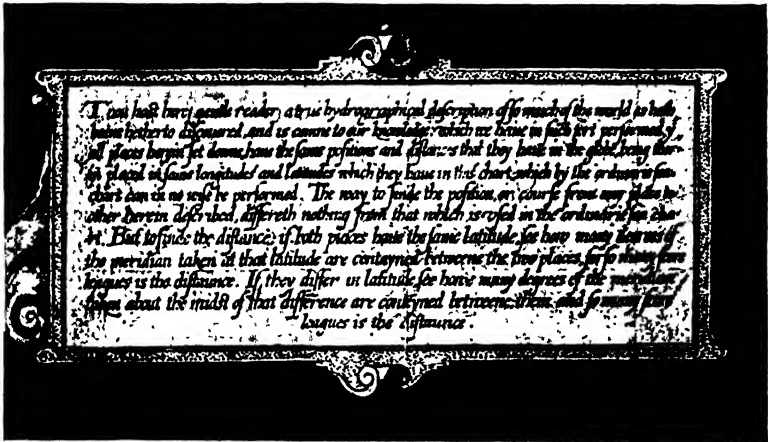 Thou hast here (gentle reader) a true hydrographical description of so much of the world as hath
beene hetherto discouered, and is comme to our knowledge: which we haue in such sort performed, yt
all places herein set downe, haue the same positions and distances that they haue in the globe, being ther-
in placed in same longitudes and latitudes which they haue in this chart, which by the ordinarie sea
chart can in no wise be performed. The way to finde the position, or course from any place to
other herein described, differeth nothing from that which is vsed in the ordinarie sea cha-
rt. But to finde the distance; if both places haue the same latitude, see how many degrees of
the meridian taken at that latitude are conteyned betweene the two places, for so many score
leagues is the distaunce. If they differ in latitude, see howe many degrees of the meridian
taken about the midst of that difference are conteyned betweene them, and so many score
leagues is the distaunce.